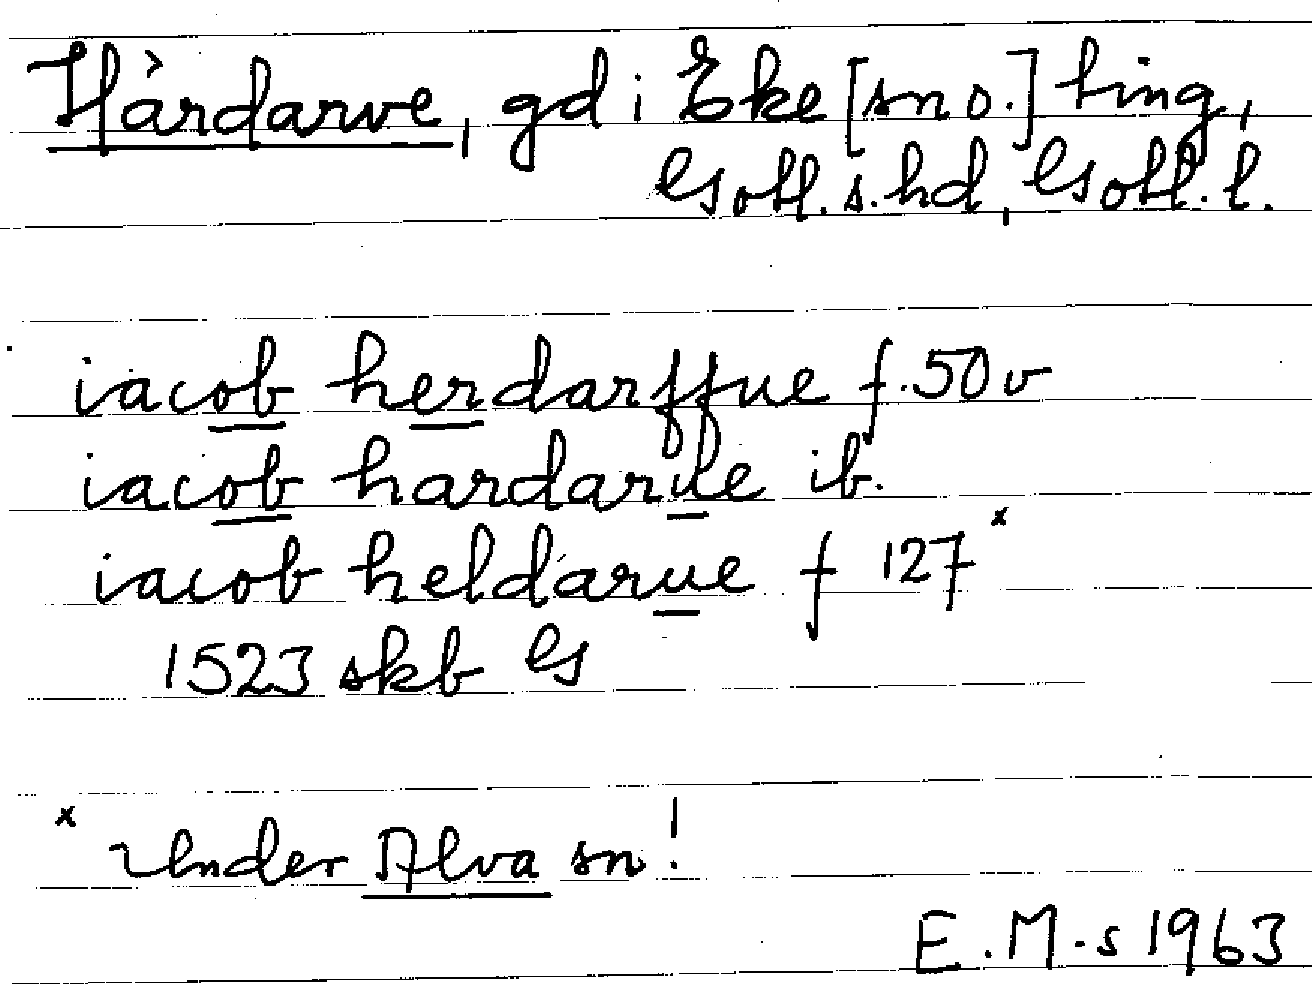 Hårdarve, gd i Eke [sn o.] ting,
Gotl. s. hd, Gotl. l.
iacob herdarffue f. 50 v
iacob hardarue ib.
iacob heldarue f 127 x
1523 skb G
x Under Alva sn!
E. M-s 1963